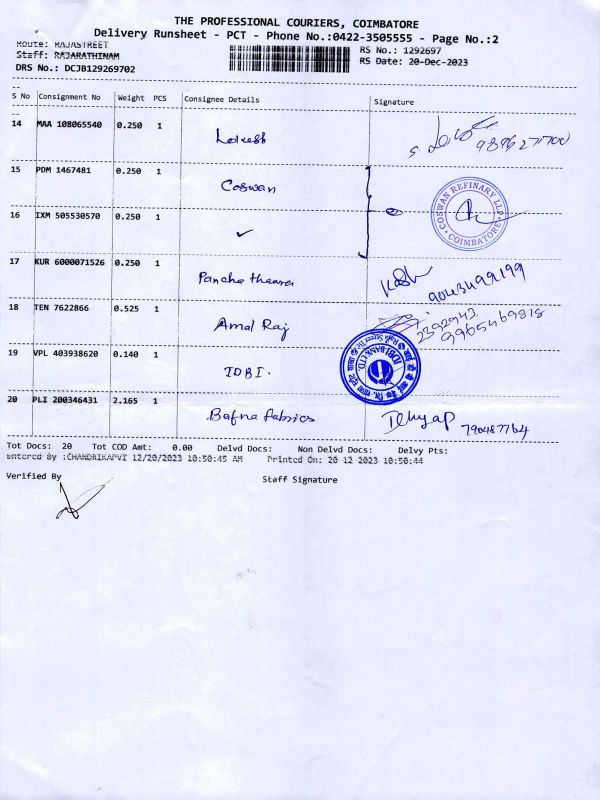 THE PROFESSIONAL COURIERS, COIMBATORE
Delivery Runsheet - PCT - Phone No.:0422-3505555 - Page No.:2
Route: RAJASTREET
RS No.: 1292697
Staff: RAJARATHINAM
RS Date: 20-Dec-2023
DRS No.: DCJB129269702
S No Consignment No Weight PCS Consignee Details Signature
14 MAA 108065540 0.250 1 Lokesh
15 PDM 1467481 0.250 1 Coswan
COSWAN REFINARY LLP COIMBATORE
16 IXM 505530570 0.250 1 ✓
17 KUR 6000071526 0.250 1 Pancha theara 9043499199
18 TEN 7622866 0.525 1 Amal Raj 2392943
9965469818
19 VPL 403938620 0.140 1 IDBI.
IDBI BANK LTD.
20 PLI 200346431 2.165 1 Bafna fabrics
Tot Docs: 20 Tot COD Amt: 0.00 Delvd Docs: Non Delvd Docs: Delvy Pts:
Entered By :CHANDRIKAPVT 12/20/2023 10:50:45 AM Printed On: 20-12-2023 10:50:44
Verified By Staff Signature